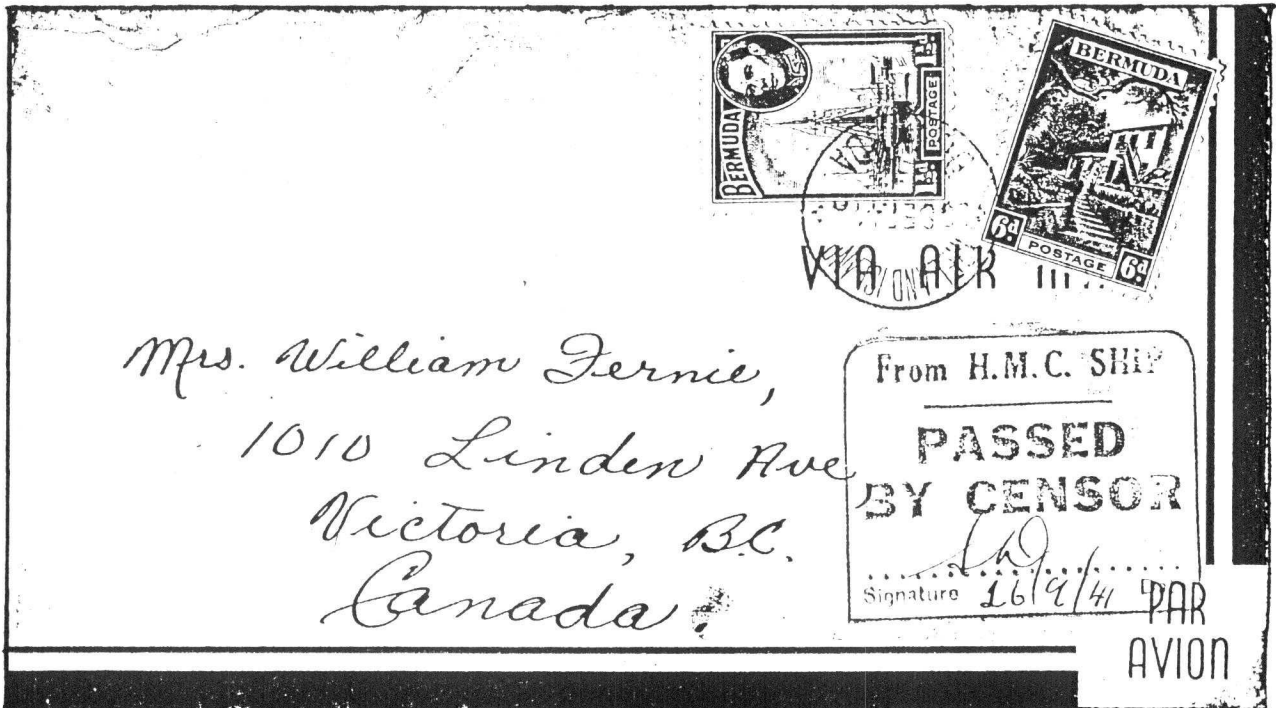 BERMUDA
POSTAGE
1d.
1d.
BERMUDA
6d
POSTAGE
6d.
VIA AIR
Mrs. William Fernie,
1010 Linden Ave
Victoria, B.C.
Canada.
From H.M.C. SHIP
PASSED
BY CENSOR
Signature 26/9/41
PAR
AVION